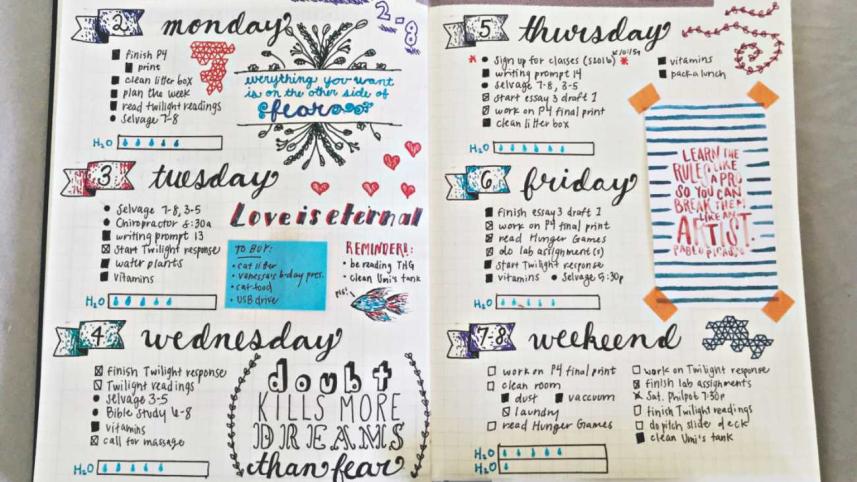 2 monday
finish P4
print
clean litter box
plan the week
read twilight readings
Selvage 7-8
H₂O
2-8
everything you want
is on the other side of
fear
3 tuesday
Selvage 7-8, 3-5
Chiropractor 8:30a
writing prompt 13
Start Twilight response
water plants
vitamins
H₂O
Love is eternal
TO BUY:
cat litter
vanessa's b-day pres.
cat food
USB drive
REMINDER!:
be reading THG
clean Umi's tank
4 wednesday
finish Twilight response
Twilight readings
Selvage 3-5
Bible Study 6-8
vitamins
call for massage
H₂O
doubt
KILLS MORE
DREAMS
than fear
5 thursday
Sign up for classes (S2016)
writing prompt 14
Selvage 7-8, 3-5
Start essay 3 draft 1
work on P4 final print
clean litter box
vitamins
pack a lunch
H₂O
LEARN THE
RULES LIKE
A PRO
SO YOU CAN
BREAK THEM
LIKE AN
ARTIST.
PABLO PICASSO
6 friday
finish essay 3 draft 1
work on P4 final print
read Hunger Games
do lab assignment(s)
start Twilight response
vitamins Selvage 5:30p
H₂O
7-8 weekend
work on P4 final print
clean room
dust vaccuum
laundry
read Hunger Games
work on Twilight response
finish lab assignments
Sat. Philpot 7:30p
finish Twilight readings
do pitch slide deck
clean Umi's tank
H₂O
H₂O